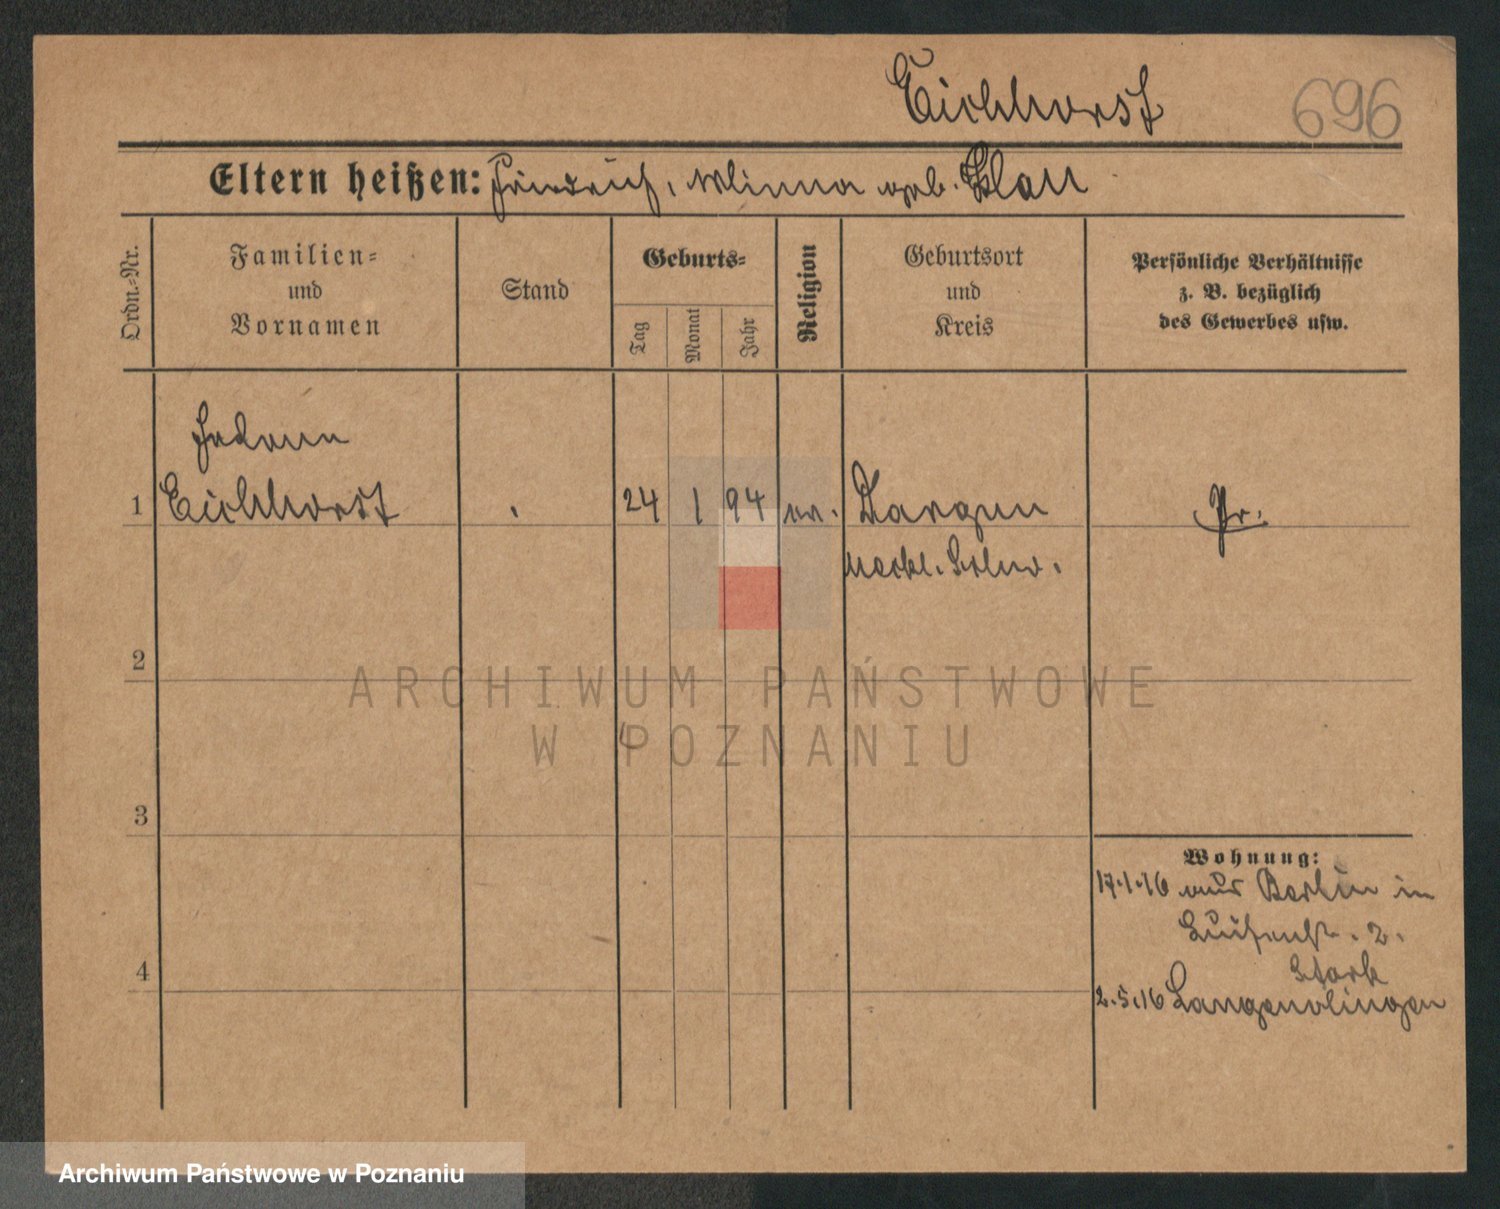 Eichhorst
696
Eltern heißen: Friedrich, Minna geb. Klatt
Ordn.-Nr.
Familien-
und
Vornamen
Stand
Geburts-
Tag
Monat
Jahr
Religion
Geburtsort
und
Kreis
Persönliche Verhältnisse
z. B. bezüglich
des Gewerbes usw.
1
Eichhorst
24 1 94
ev.
Dargun
Meckl. Schw.
Pr.
2
ARCHIWUM PAŃSTWOWE
W POZNANIU
3
Wohnung:
17.1.16 aus Berlin in
Luisenstr. 2.
Stark
4
2.5.16 Langenolingen
Archiwum Państwowe w Poznaniu